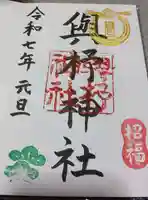 招福
與杼神社
令和七年 元旦